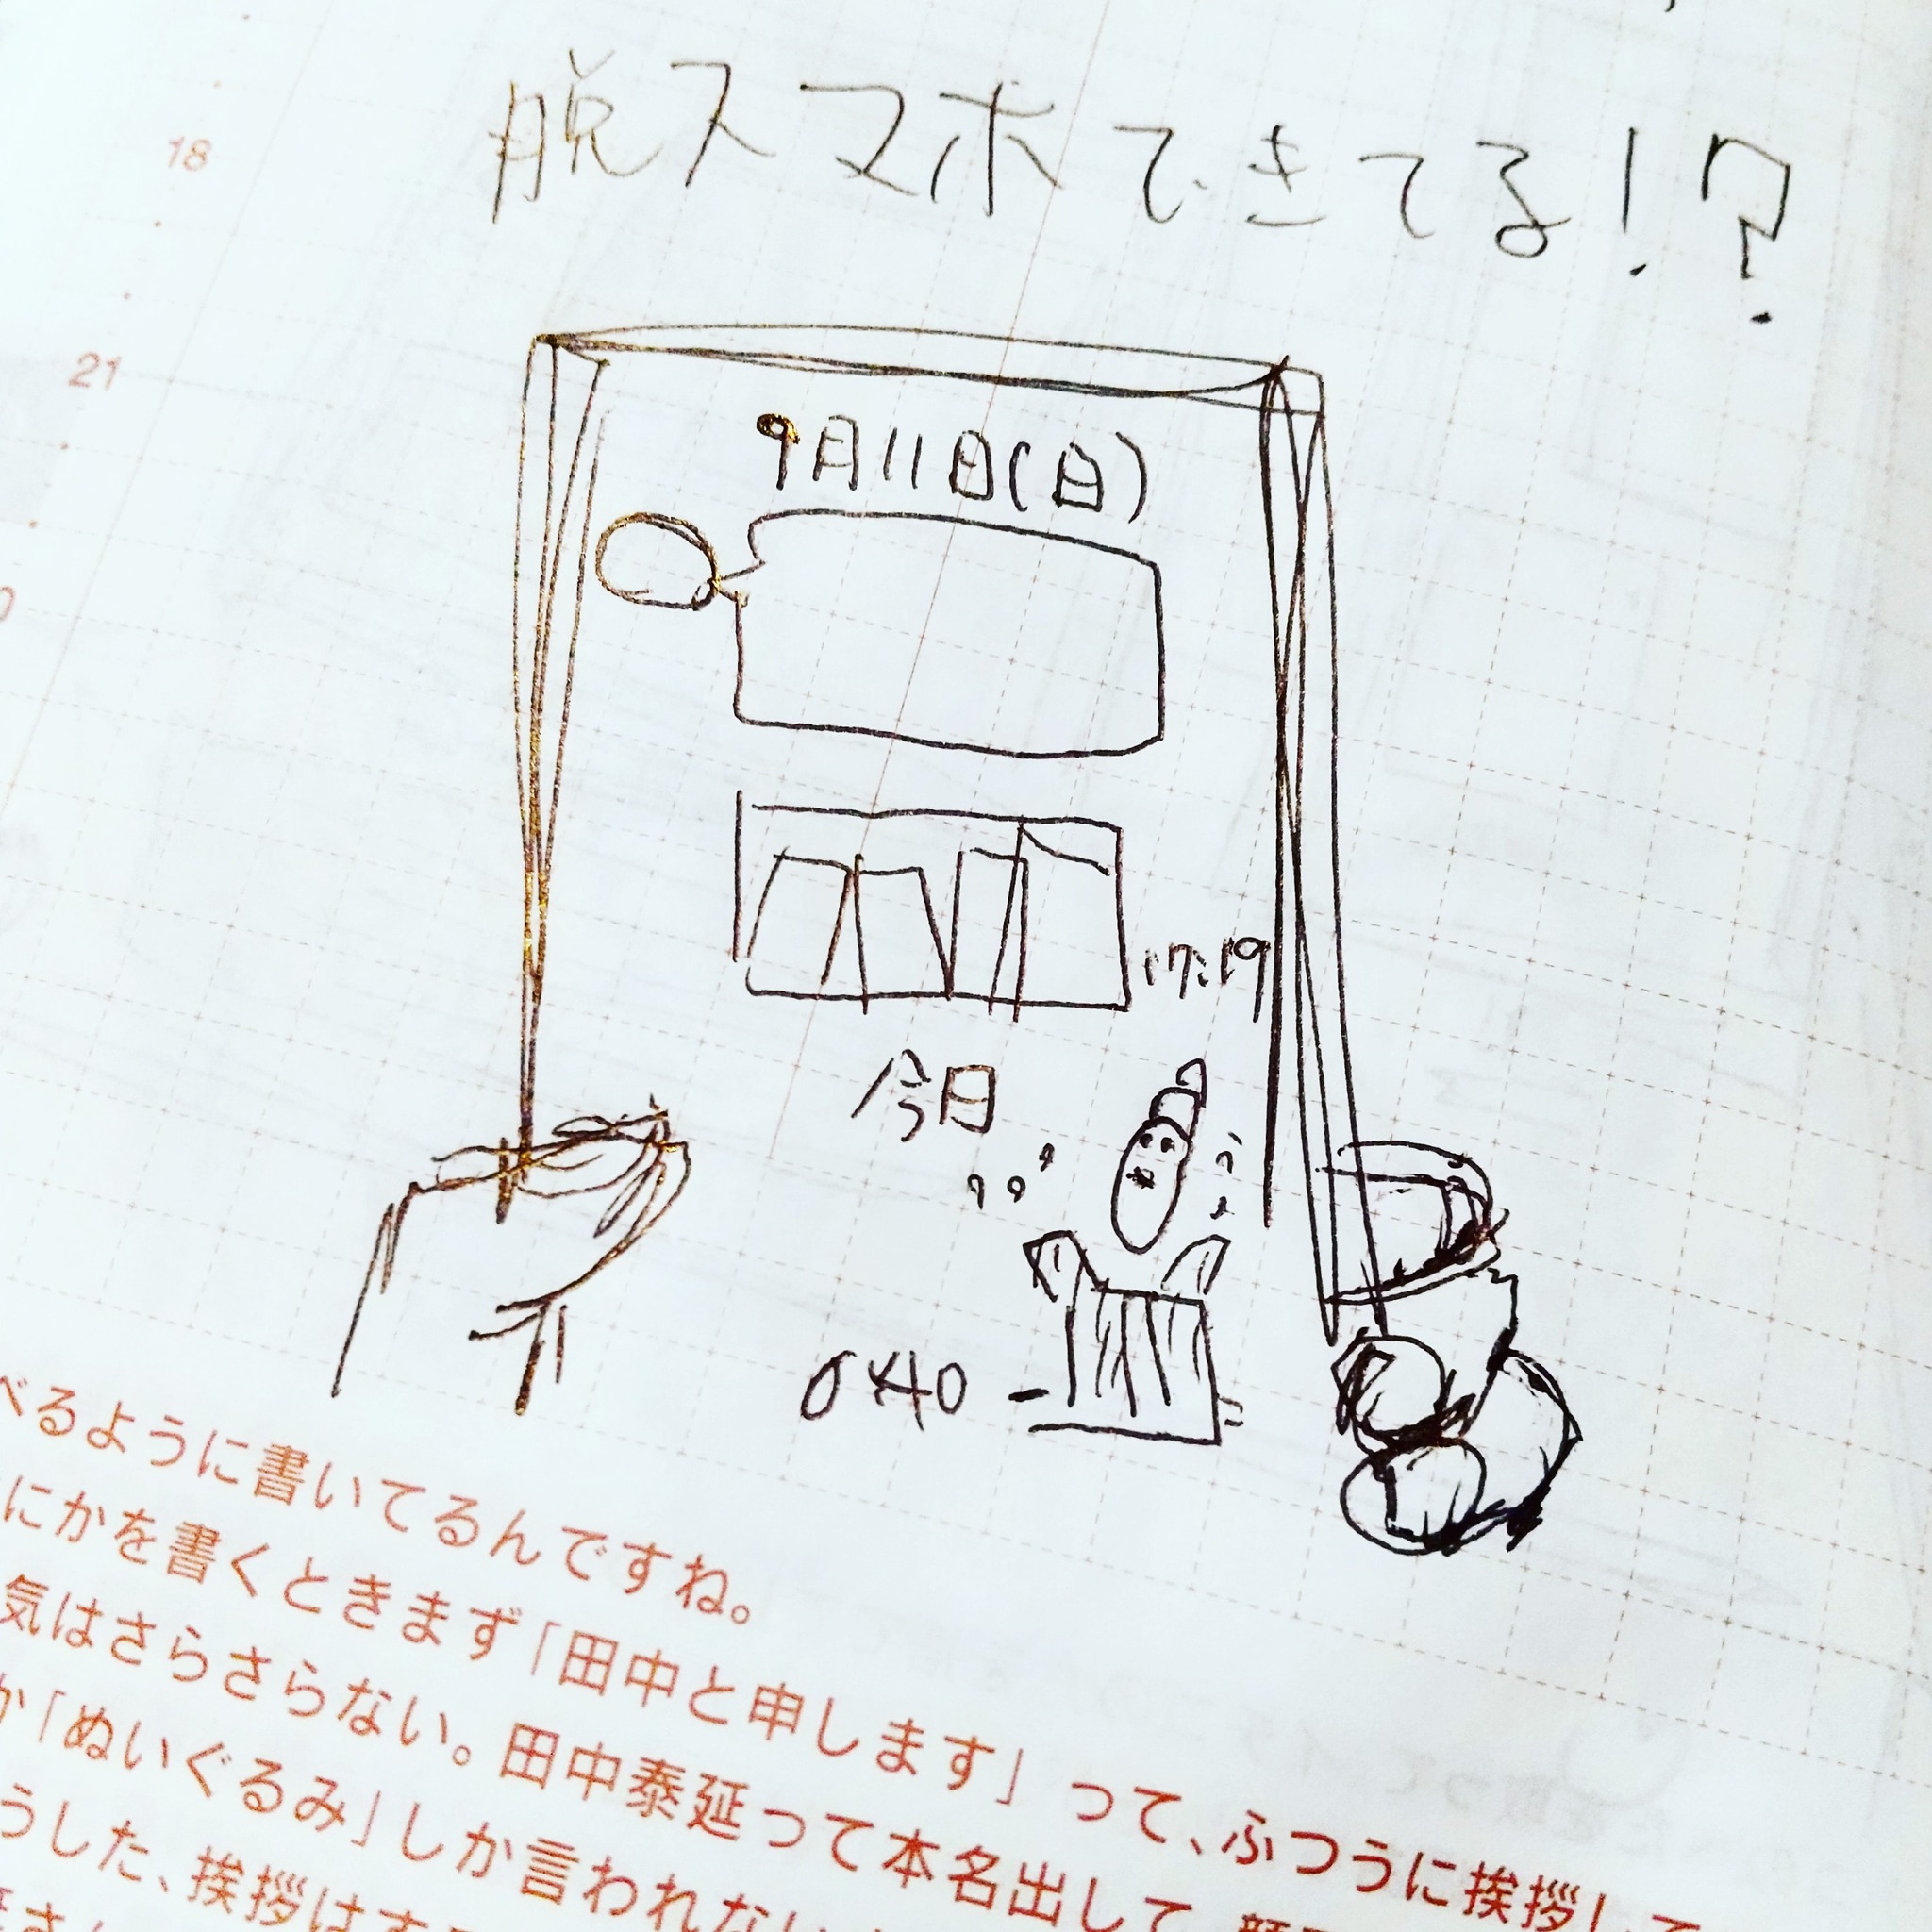 18
脱スマホできてる!?
21
9月11日(日)
17:19
今日
べるように書いてるんですね。
にかを書くときまず「田中と申します」って、ふつうに挨拶して
気はさらさらない。田中泰延って本名出して、
か「ぬいぐるみ」しか言われない
うした、挨拶は